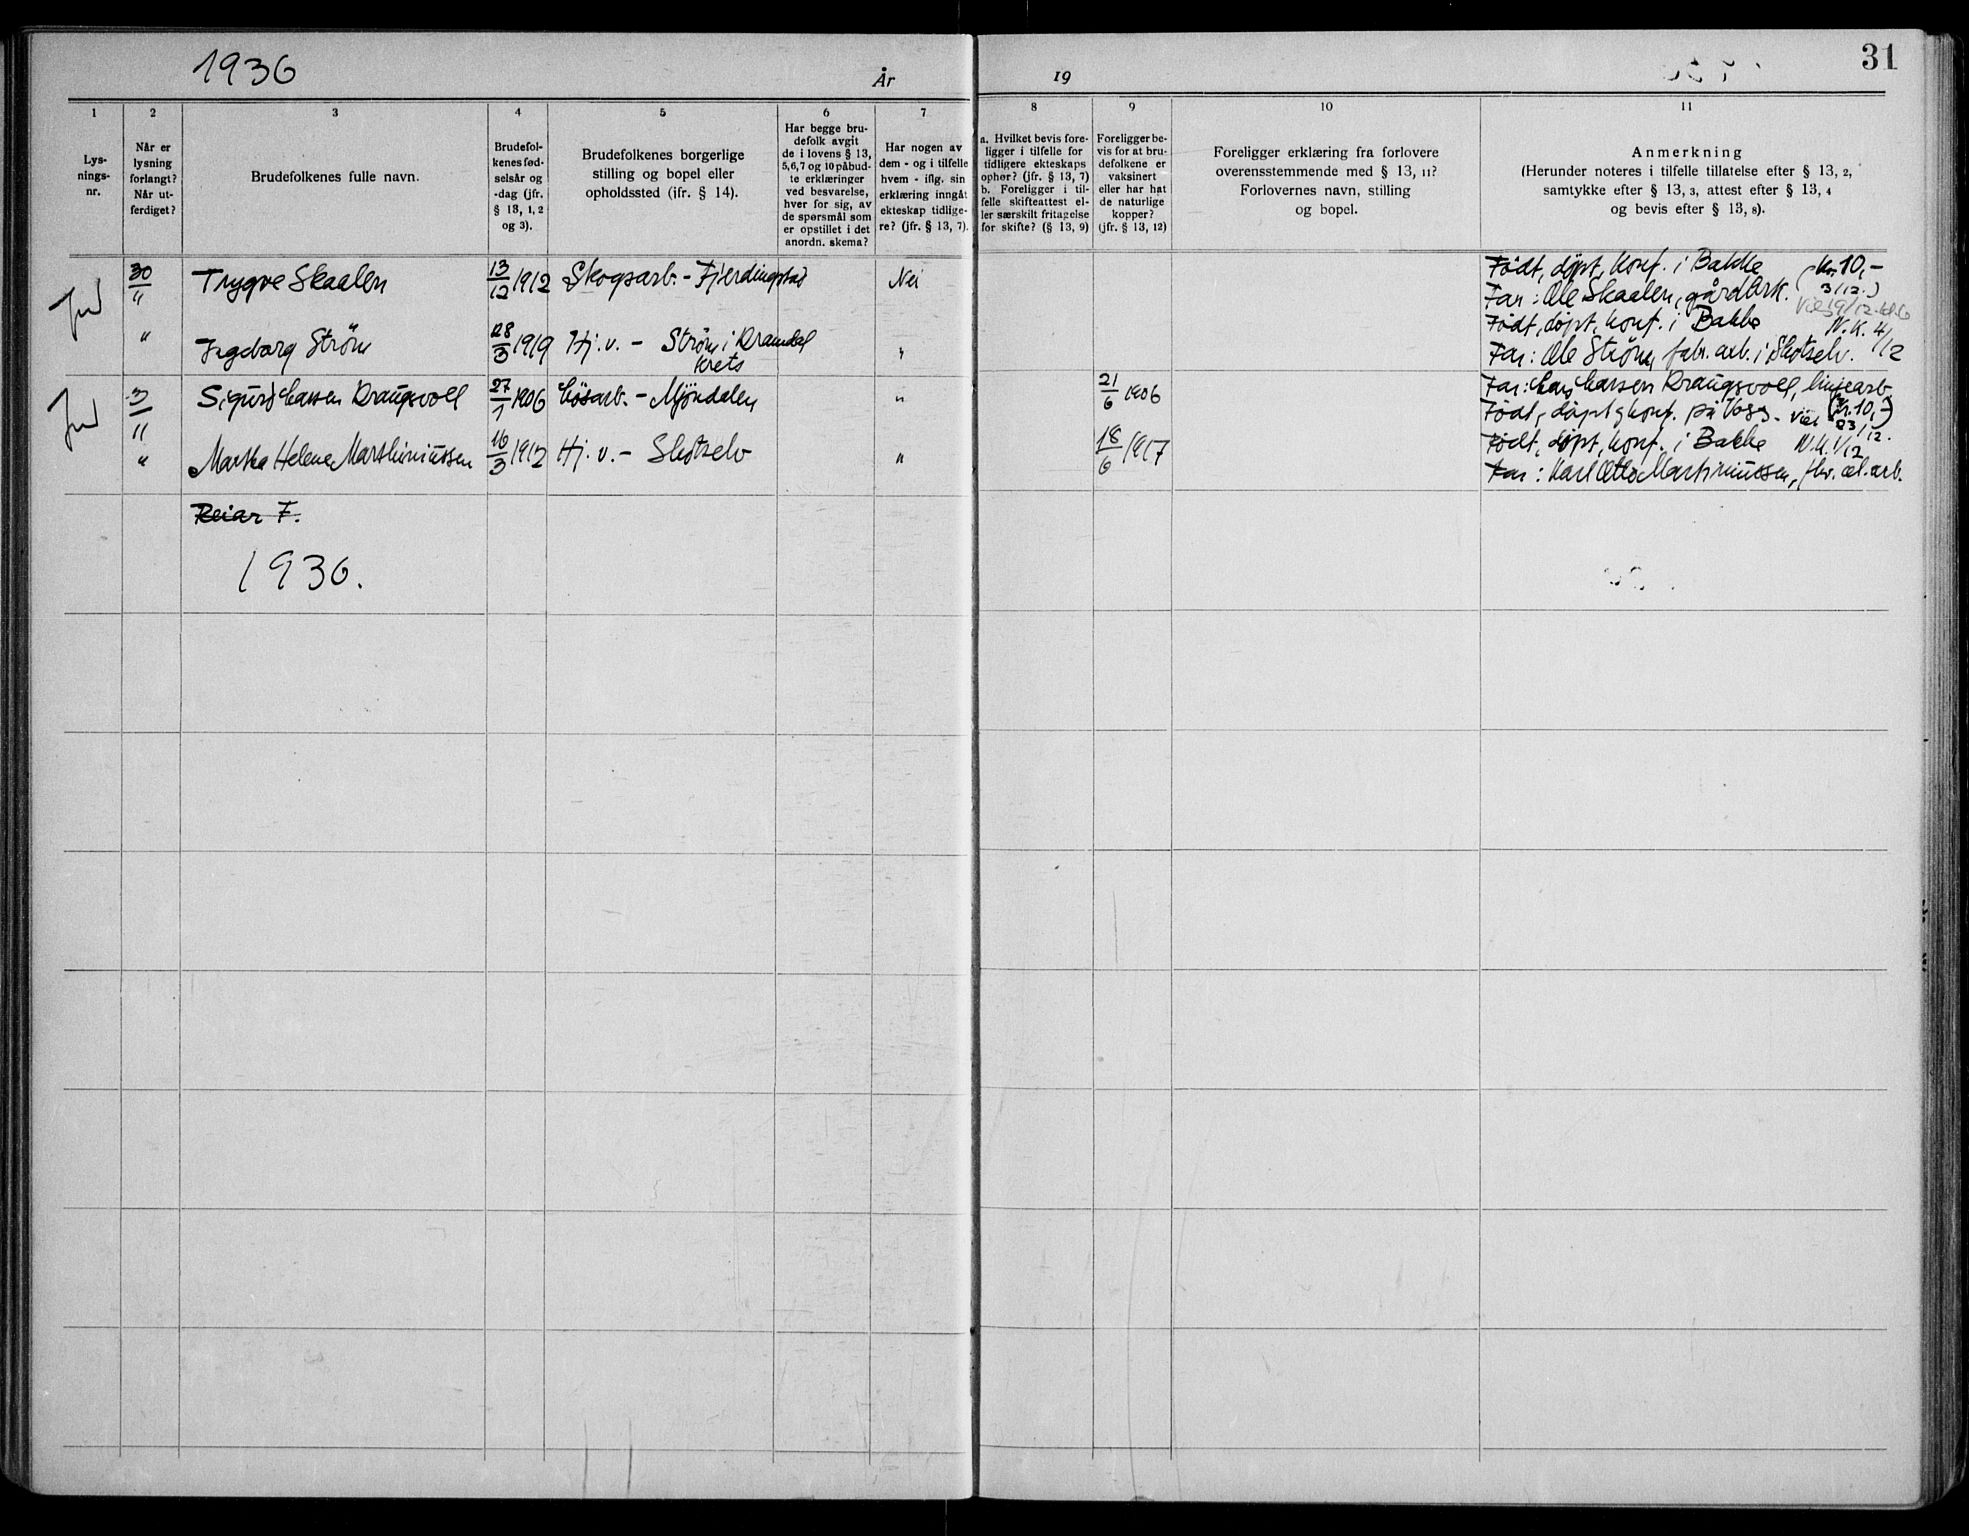 1936
År
19
31
1
2
3
4
5
6
7
8
9
10
11
Lys-
nings-
nr.
Når er
lysning
forlangt?
Når ut-
ferdiget?
Brudefolkenes fulle navn.
Brudefol-
kenes fød-
selsår og
-dag (jfr.
§ 13, 1, 2
og 3).
Brudefolkenes borgerlige
stilling og bopel eller
opholdssted (ifr. § 14).
Har begge bru-
defolk avgit
de i lovens § 13,
5,6,7 og 10 påbud-
te erklæringer
ved besvarelse,
hver for sig, av
de spørsmål som
er opstillet i det
anordn. skema?
Har nogen av
dem - og i tilfelle
hvem - iflg. sin
erklæring inngåt
ekteskap tidlige-
re? (jfr. § 13, 7).
a. Hvilket bevis fore-
ligger i tilfelle for
tidligere ekteskaps
ophør? (jfr. § 13, 7)
b. Foreligger i til-
felle skifteattest el-
ler særskilt fritagelse
for skifte? (§ 13, 9)
Foreligger be-
vis for at bru-
defolkene er
vaksinert
eller har hat
de naturlige
kopper?
(jfr. § 13, 12)
Foreligger erklæring fra forlovere
overensstemmende med § 13, 11?
Forlovernes navn, stilling
og bopel.
Anmerkning
(Herunder noteres i tilfelle tillatelse efter § 13, 2,
samtykke efter § 13, 3, attest efter § 13, 4
og bevis efter § 13, 8).
30/11 Trygve Skaalen 13/12 1912 Skogsarb. - Fjerdingstad Nei Født, døpt, konf. i Bakke (Kr. 10,-
Far: Ole Skaalen, gårdbrk. 3/12.)
" Ingeborg Strøm 28/3 1919 Hj. v. - Strøm i Dramdal " Født, døpt, konf. i Bakke N. K. 4/12
krets Far: Ole Strøm, fabr. arb. i Skotselv.
3/11 Sigurd Larsen Draugsvoll 27/1 1906 Løsarb. - Mjøndalen " 21/6 1906 Far: Lars Larsen Draugsvoll, linjearb.
Født, døpt og konf. på Voss. Viet 23/12. (Kr. 10,-)
" Martha Helene Marthiniussen 16/3 1912 Hj. v. - Skotselv " 18/6 1917 Født, døpt, konf. i Bakke N. K. 1/12
Far: Karl Otto Martiniussen, fhv. cel. arb.
Reiar F.
1936.